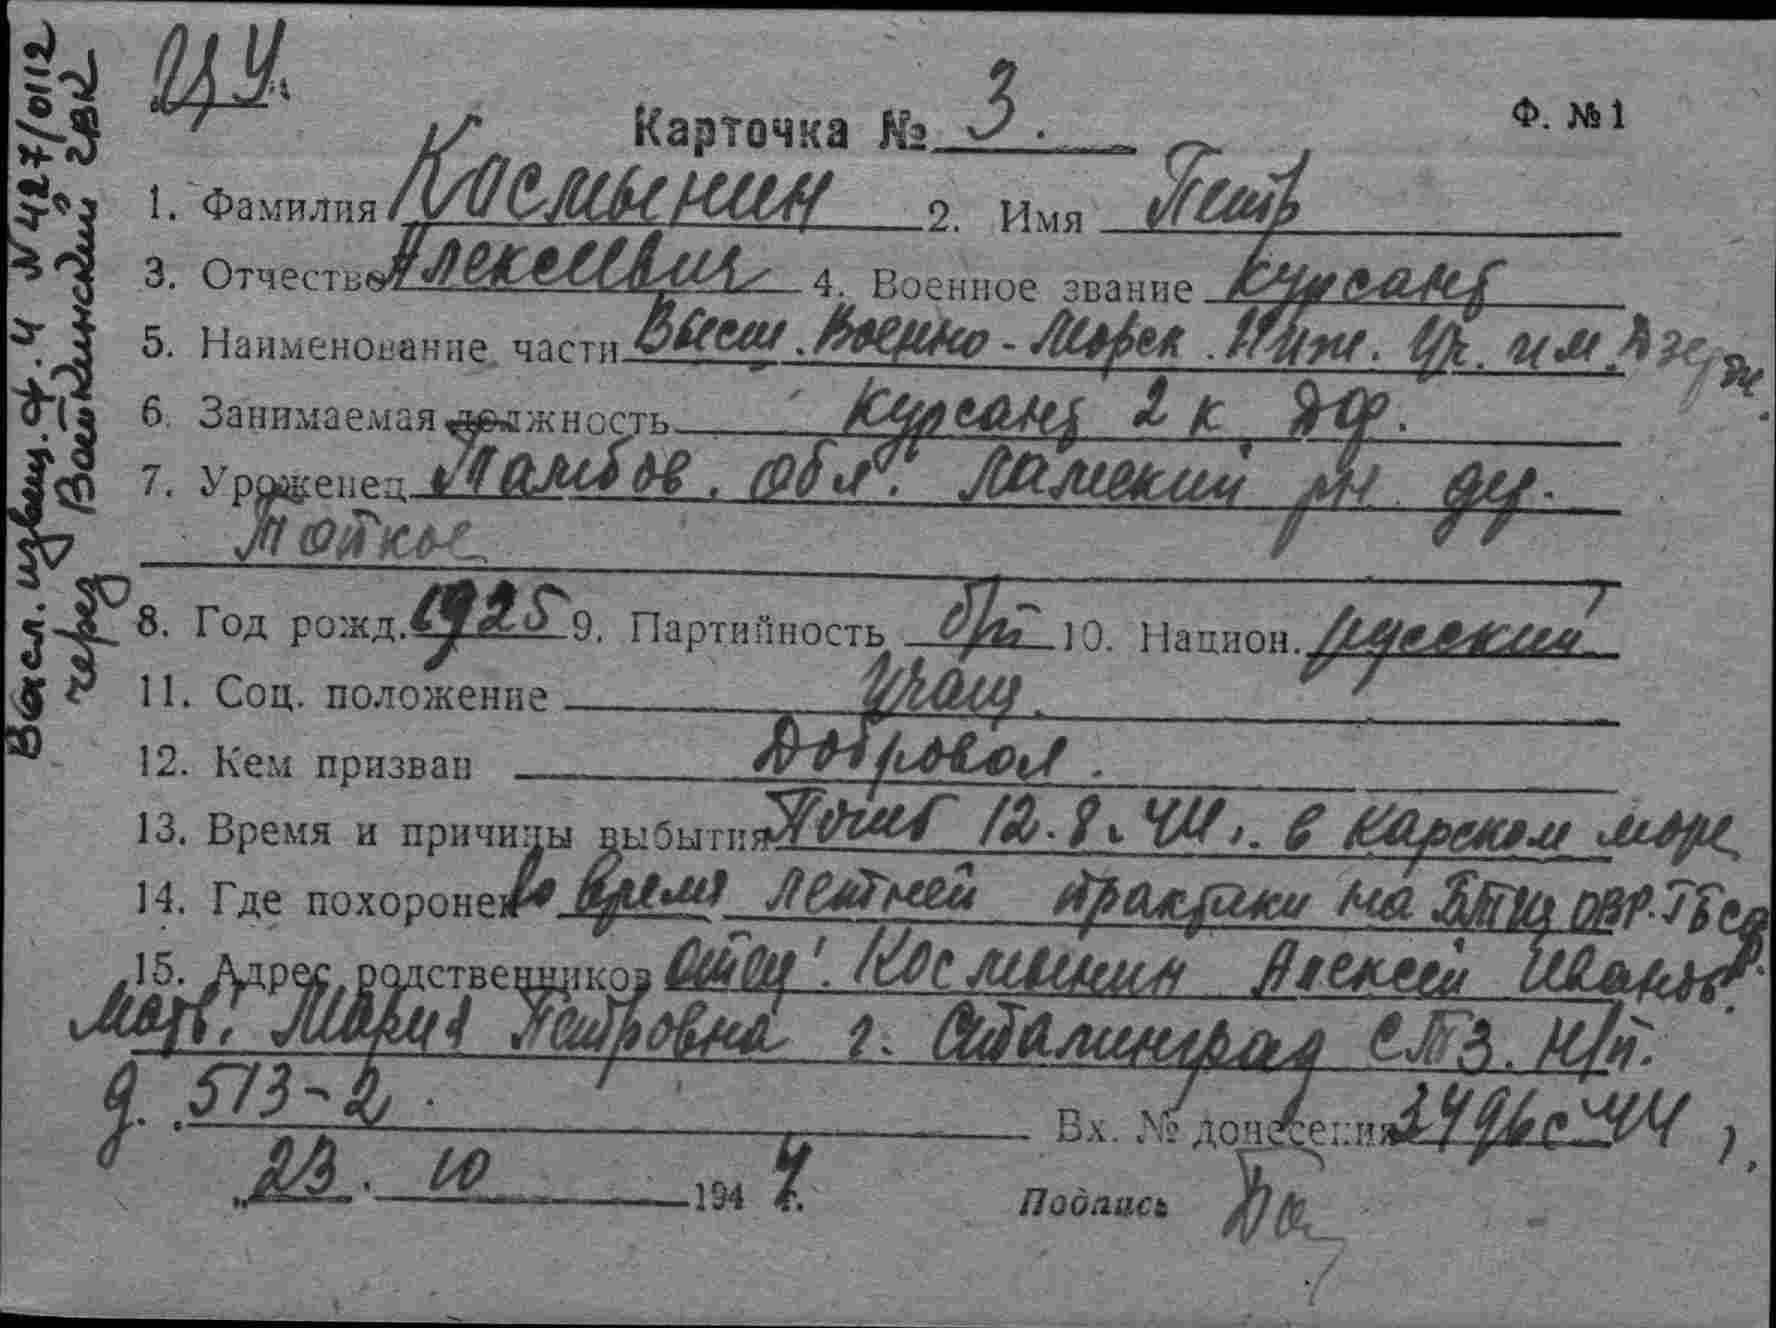 ЦУ.
Карточка № 3.
Ф. № 1
1. Фамилия Космынин 2. Имя Петр
3. Отчество Алексеевич 4. Военное звание курсант
5. Наименование части Высш. Военно-Морск. Инж. Уч. им. Дзерж.
6. Занимаемая должность курсант 2 к. ДФ.
7. Уроженец Тамбов. обл. Ламский рн. дер.
Тоткое
8. Год рожд. 1925 9. Партийность б/п 10. Национ. русский
11. Соц. положение Учащ.
12. Кем призван Добровол.
13. Время и причины выбытия Погиб 12.8.44 г. в Карском море
14. Где похоронен Во время летней практики на БТЩ ОВР. ББСФ
15. Адрес родственников отец: Космынин Алексей Иванов.
Мать: Мария Петровна г. Сталинград СТЗ. Н/п.
д. 513-2.
Вх. № донесения 3496с-44 г.
„23. 10 1944.
Подпись
Высл. извещ. ф. 4 № 427/0112
через